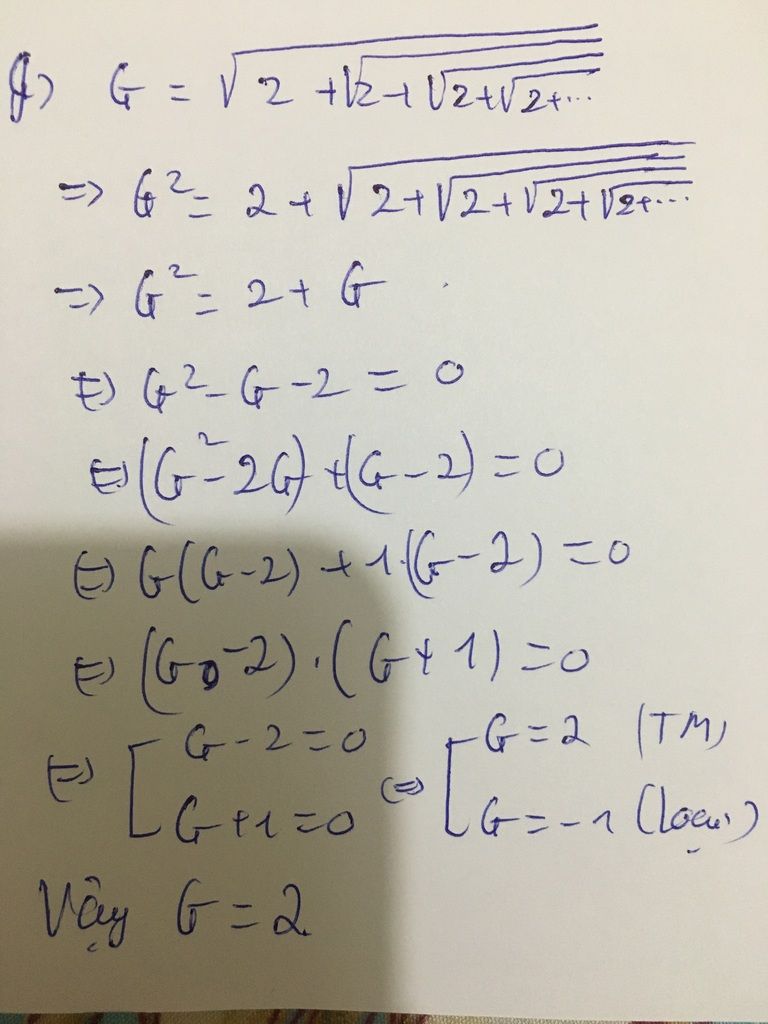 g) G = √(2 + √(2 + √(2 + √(2 + ...
=> G² = 2 + √(2 + √(2 + √(2 + √(2 + ...
=> G² = 2 + G
⇔ G² - G - 2 = 0
⇔ (G² - 2G) + (G - 2) = 0
⇔ G(G - 2) + 1.(G - 2) = 0
⇔ (G - 2).(G + 1) = 0
⇔ [ G - 2 = 0 ⇔ [ G = 2 (TM)
G + 1 = 0 G = -1 (loại)
Vậy G = 2